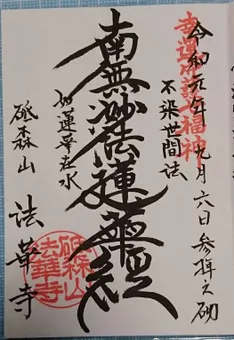 令和元年九月六日参拝之砌
幸運守護七福神
不染世間法
南無妙法蓮華経
如蓮華在水
砥森山
法華寺
砥森山
法華寺